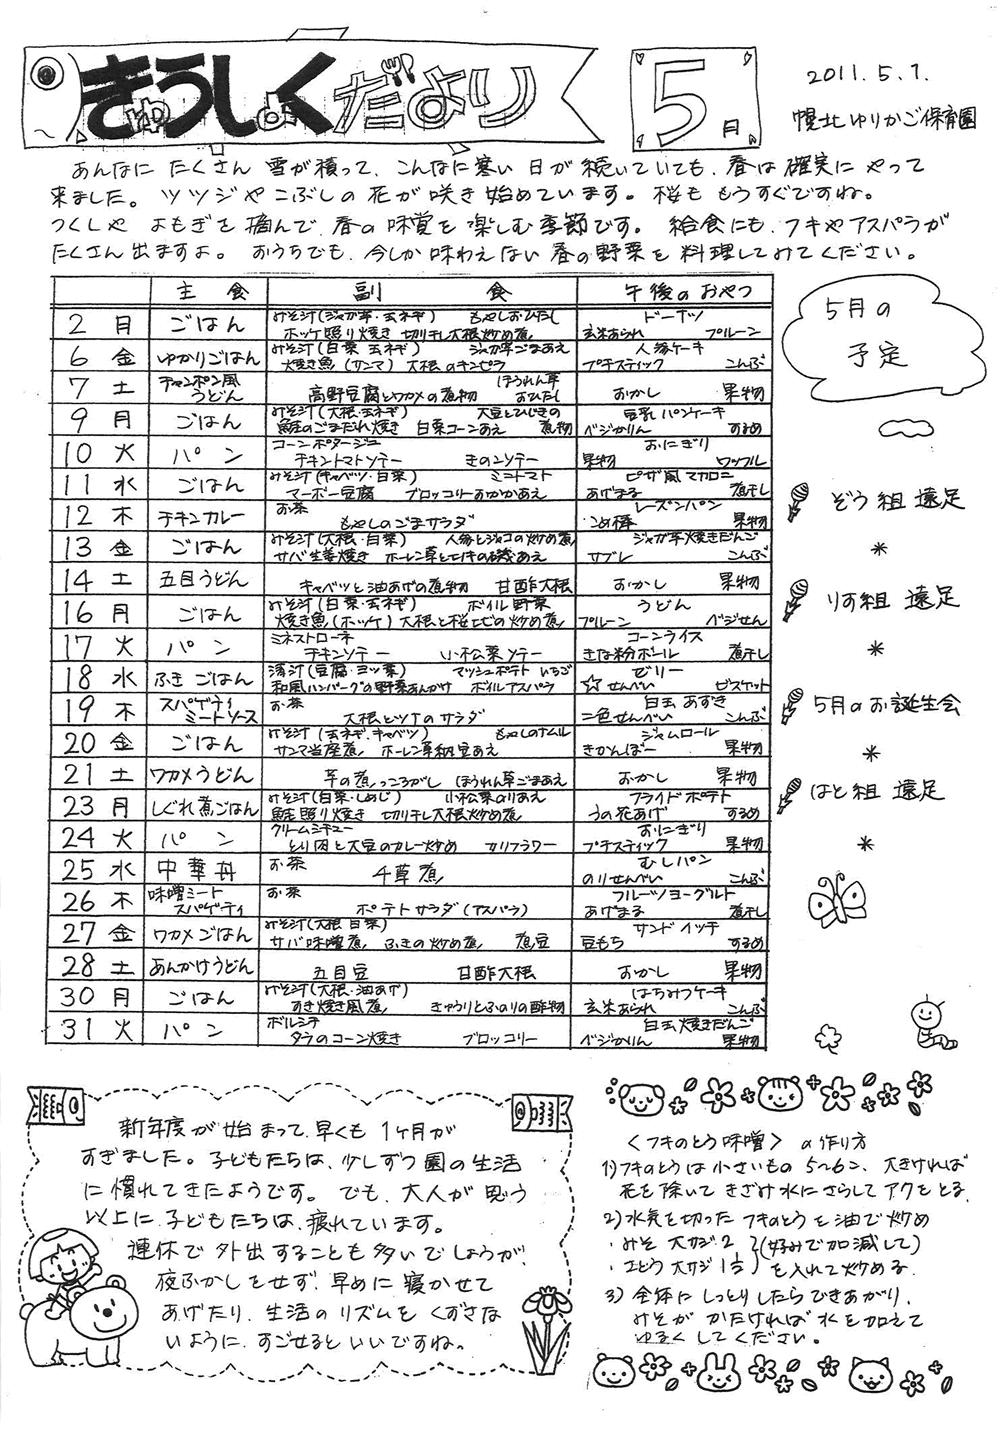 きゅうしょくだより
5月
2011.5.1.
幌北ゆりかご保育園
あんなに たくさん 雪が積って、こんなに寒い 日が 続いていても、春は確実に やって
来ました。ツツジや こぶしの 花が 咲き 始めています。桜も もうすぐですね。
つくしや よもぎを 摘んで、春の 味覚を 楽しむ 季節です。給食にも、フキや アスパラが
たくさん 出ますよ。おうちでも、今しか 味わえない 春の野菜を 料理してみてください。
主食 副食 午後のおやつ
2 月 ごはん みそ汁(ジャガ芋・玉ネギ) もやしおひたし ドーナツ
ホッケ照り焼き 切り干し大根炒め煮 玄米あられ プルーン
6 金 ゆかりごはん みそ汁(白菜 玉ネギ) ジャガ芋ごまあえ 人参ケーキ
焼き魚(サンマ) 大根のキンピラ プチスティック こんぶ
7 土 チャンポン風うどん ほうれん草
高野豆腐とワカメの煮物 おひたし おかし 果物
9 月 ごはん みそ汁(大根・玉ネギ) 大豆とひじきの 豆乳パンケーキ
鮭のごまだれ焼き 白菜コーンあえ 煮物 ベジかりん するめ
10 火 パン コーンポタージュ おにぎり
チキントマトソテー きのこソテー 果物 ワッフル
11 水 ごはん みそ汁(キャベツ・白菜) ミニトマト ピザ風マカロニ
マーボー豆腐 ブロッコリーおかかあえ あげまる 煮干し
12 木 チキンカレー お茶 レーズンパン
もやしのごまサラダ こめ棒 果物
13 金 ごはん みそ汁(大根・白菜) 人参とジャコの炒め煮 ジャガ芋焼きだんご
サバ生姜焼き ホーレン草とエノキの磯あえ サブレ こんぶ
14 土 五目うどん キャベツと油あげの煮物 甘酢大根 おかし 果物
16 月 ごはん みそ汁(白菜・玉ネギ) ボイル野菜 うどん
焼き魚(ホッケ) 大根と桜エビの炒め煮 プルーン ベジせん
17 火 パン ミネストローネ コーンライス
チキンソテー 小松菜ソテー きな粉ボール 煮干し
18 水 ふきごはん 清汁(豆腐・ミツ葉) マッシュポテト いちご ゼリー
和風ハンバーグの野菜あんかけ ボイルアスパラ ☆せんべい ビスケット
19 木 スパゲティミートソース お茶 白玉あずき
大根とツナのサラダ 二色せんべい こんぶ
20 金 ごはん みそ汁(玉ネギ、キャベツ) もやしのナムル ジャムロール
サンマ当座煮 ホーレン草納豆あえ きかんぼー 果物
21 土 ワカメうどん 芋の煮っころがし ほうれん草ごまあえ おかし 果物
23 月 しぐれ煮ごはん みそ汁(白菜・しめじ) 小松菜のりあえ フライドポテト
鮭照り焼き 切り干し大根炒め煮 うの花あげ するめ
24 火 パン クリームシチュー おにぎり
とり肉と大豆のカレー炒め カリフラワー プチスティック 果物
25 水 中華丼 お茶 むしパン
千草煮 のりせんべい こんぶ
26 木 味噌ミートスパゲティ お茶 フルーツヨーグルト
ポテトサラダ(アスパラ) あげまる 煮干し
27 金 ワカメごはん みそ汁(大根 白菜) サンドイッチ
サバ味噌煮 ふきの炒め煮 煮豆 豆もち するめ
28 土 あんかけうどん 五目豆 甘酢大根 おかし 果物
30 月 ごはん みそ汁(大根・油あげ) はちみつケーキ
すき焼き風煮 きゅうりとふのりの酢物 玄米あられ こんぶ
31 火 パン ボルシチ 白玉焼きだんご
タラのコーン焼き ブロッコリー ベジかりん 果物
5月の
予定
ぞう組 遠足
*
りす組 遠足
*
5月のお誕生会
*
はと組 遠足
*
新年度が 始まって、早くも 1ヶ月が
すぎました。子どもたちは、少しずつ 園の生活
に慣れてきたようです。でも、大人が 思う
以上に、子どもたちは、疲れています。
連休で 外出することも 多いでしょうが、
夜ふかしをせず、早めに 寝かせて
あげたり、生活の リズムを くずさな
いように、すごせるといいですね。
〈フキのとう味噌〉の作り方
1)フキのとうは 小さいもの 5〜6コ、大きければ
花を除いて きざみ 水にさらして アクをとる。
2)水気を切った フキのとうを 油で炒め
・みそ 大サジ 2 (好みで加減して)
・さとう 大サジ 1½ を入れて炒める.
3)全体に しっとりしたら できあがり.
みそが かたければ 水を加えて
ゆるくしてください。